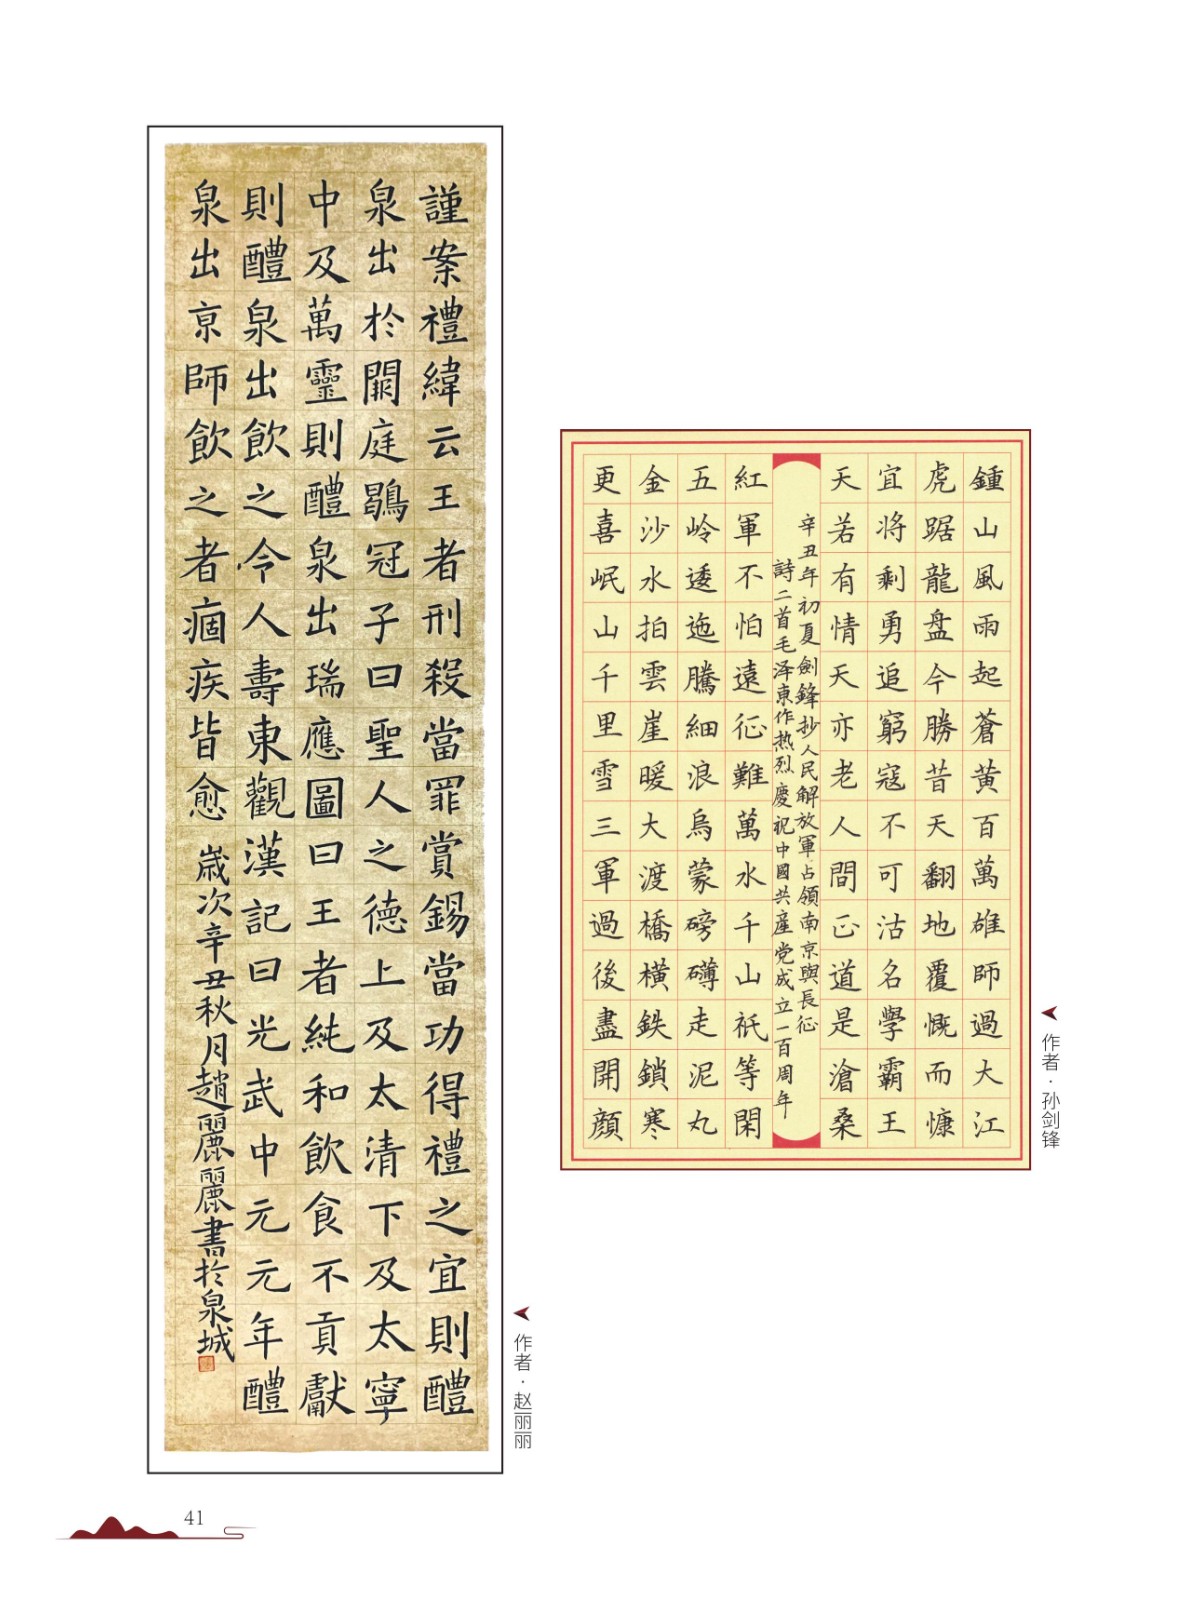 謹案禮緯云王者刑殺當罪賞錫當功得禮之宜則醴
泉出於闕庭鶡冠子曰聖人之德上及太清下及太寧
中及萬靈則醴泉出瑞應圖曰王者純和飲食不貢獻
則醴泉出飲之令人壽東觀漢記曰光武中元元年醴
泉出京師飲之者痼疾皆愈
歲次辛丑秋月趙麗麗書於泉城
作者·赵丽丽
鍾山風雨起蒼黄百萬雄師過大江
虎踞龍盘今勝昔天翻地覆慨而慷
宜将剩勇追窮寇不可沽名學霸王
天若有情天亦老人間正道是滄桑
辛丑年初夏劍鋒抄人民解放軍占領南京與長征
詩二首毛泽東作热烈慶祝中國共産党成立一百周年
紅軍不怕遠征難萬水千山祇等閑
五岭逶迤騰細浪烏蒙磅礴走泥丸
金沙水拍雲崖暖大渡橋横鉄鎖寒
更喜岷山千里雪三軍過後盡開顔
作者·孙剑锋
41